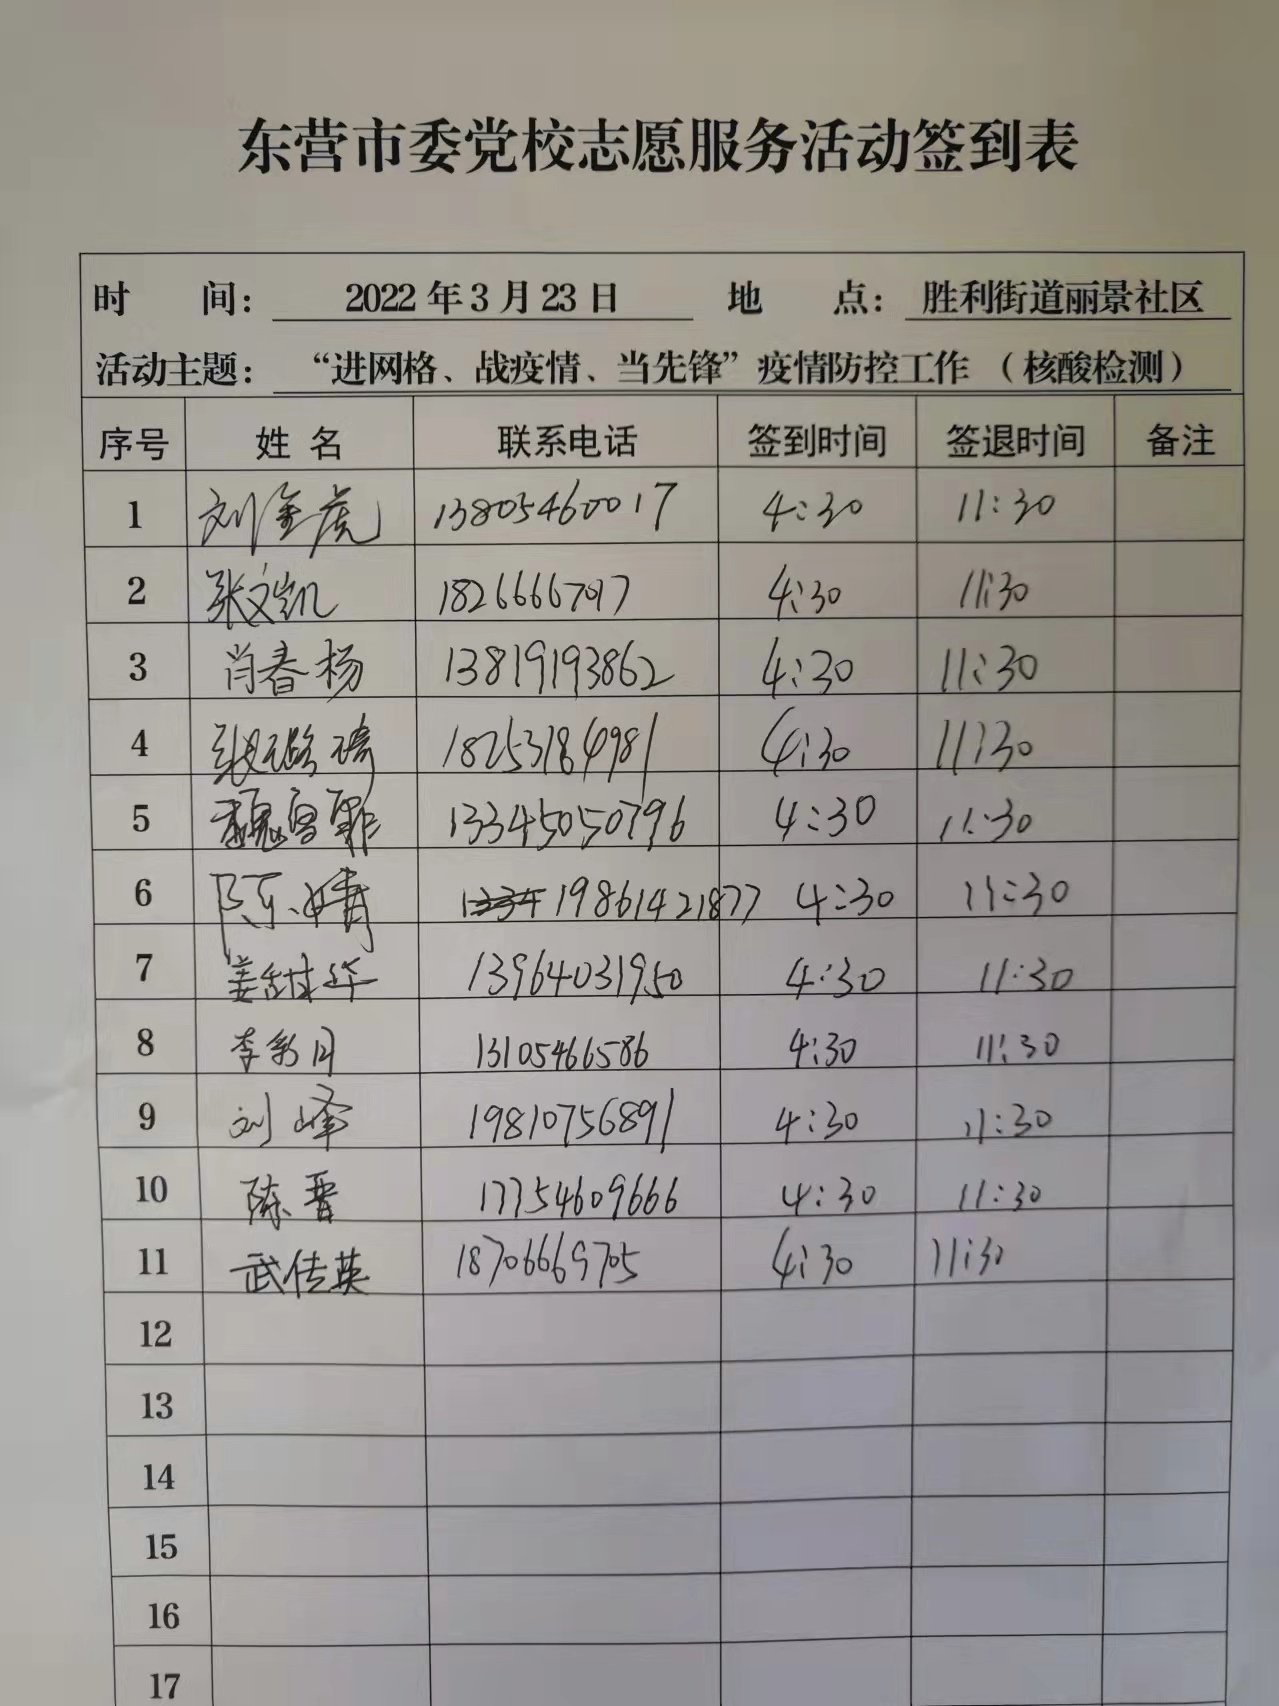 东营市委党校志愿服务活动签到表
时 间： 2022年3月23日 地 点： 胜利街道丽景社区
活动主题： “进网格、战疫情、当先锋”疫情防控工作（核酸检测）
序号 姓名 联系电话 签到时间 签退时间 备注
1 刘金虎 13805460017 4:30 11:30
2 张文凯 4:30 11:30
3 肖春杨 13819193862 4:30 11:30
4 张 18253184981 4:30 11:30
5 魏 13345050796 4:30 11:30
6 陈婧 19861421877 4:30 11:30
7 姜甜华 13964031950 4:30 11:30
8 李彩月 13105466586 4:30 11:30
9 刘峰 19810756891 4:30 11:30
10 陈晋 17754609666 4:30 11:30
11 武传英 18706669705 4:30 11:30
12
13
14
15
16
17